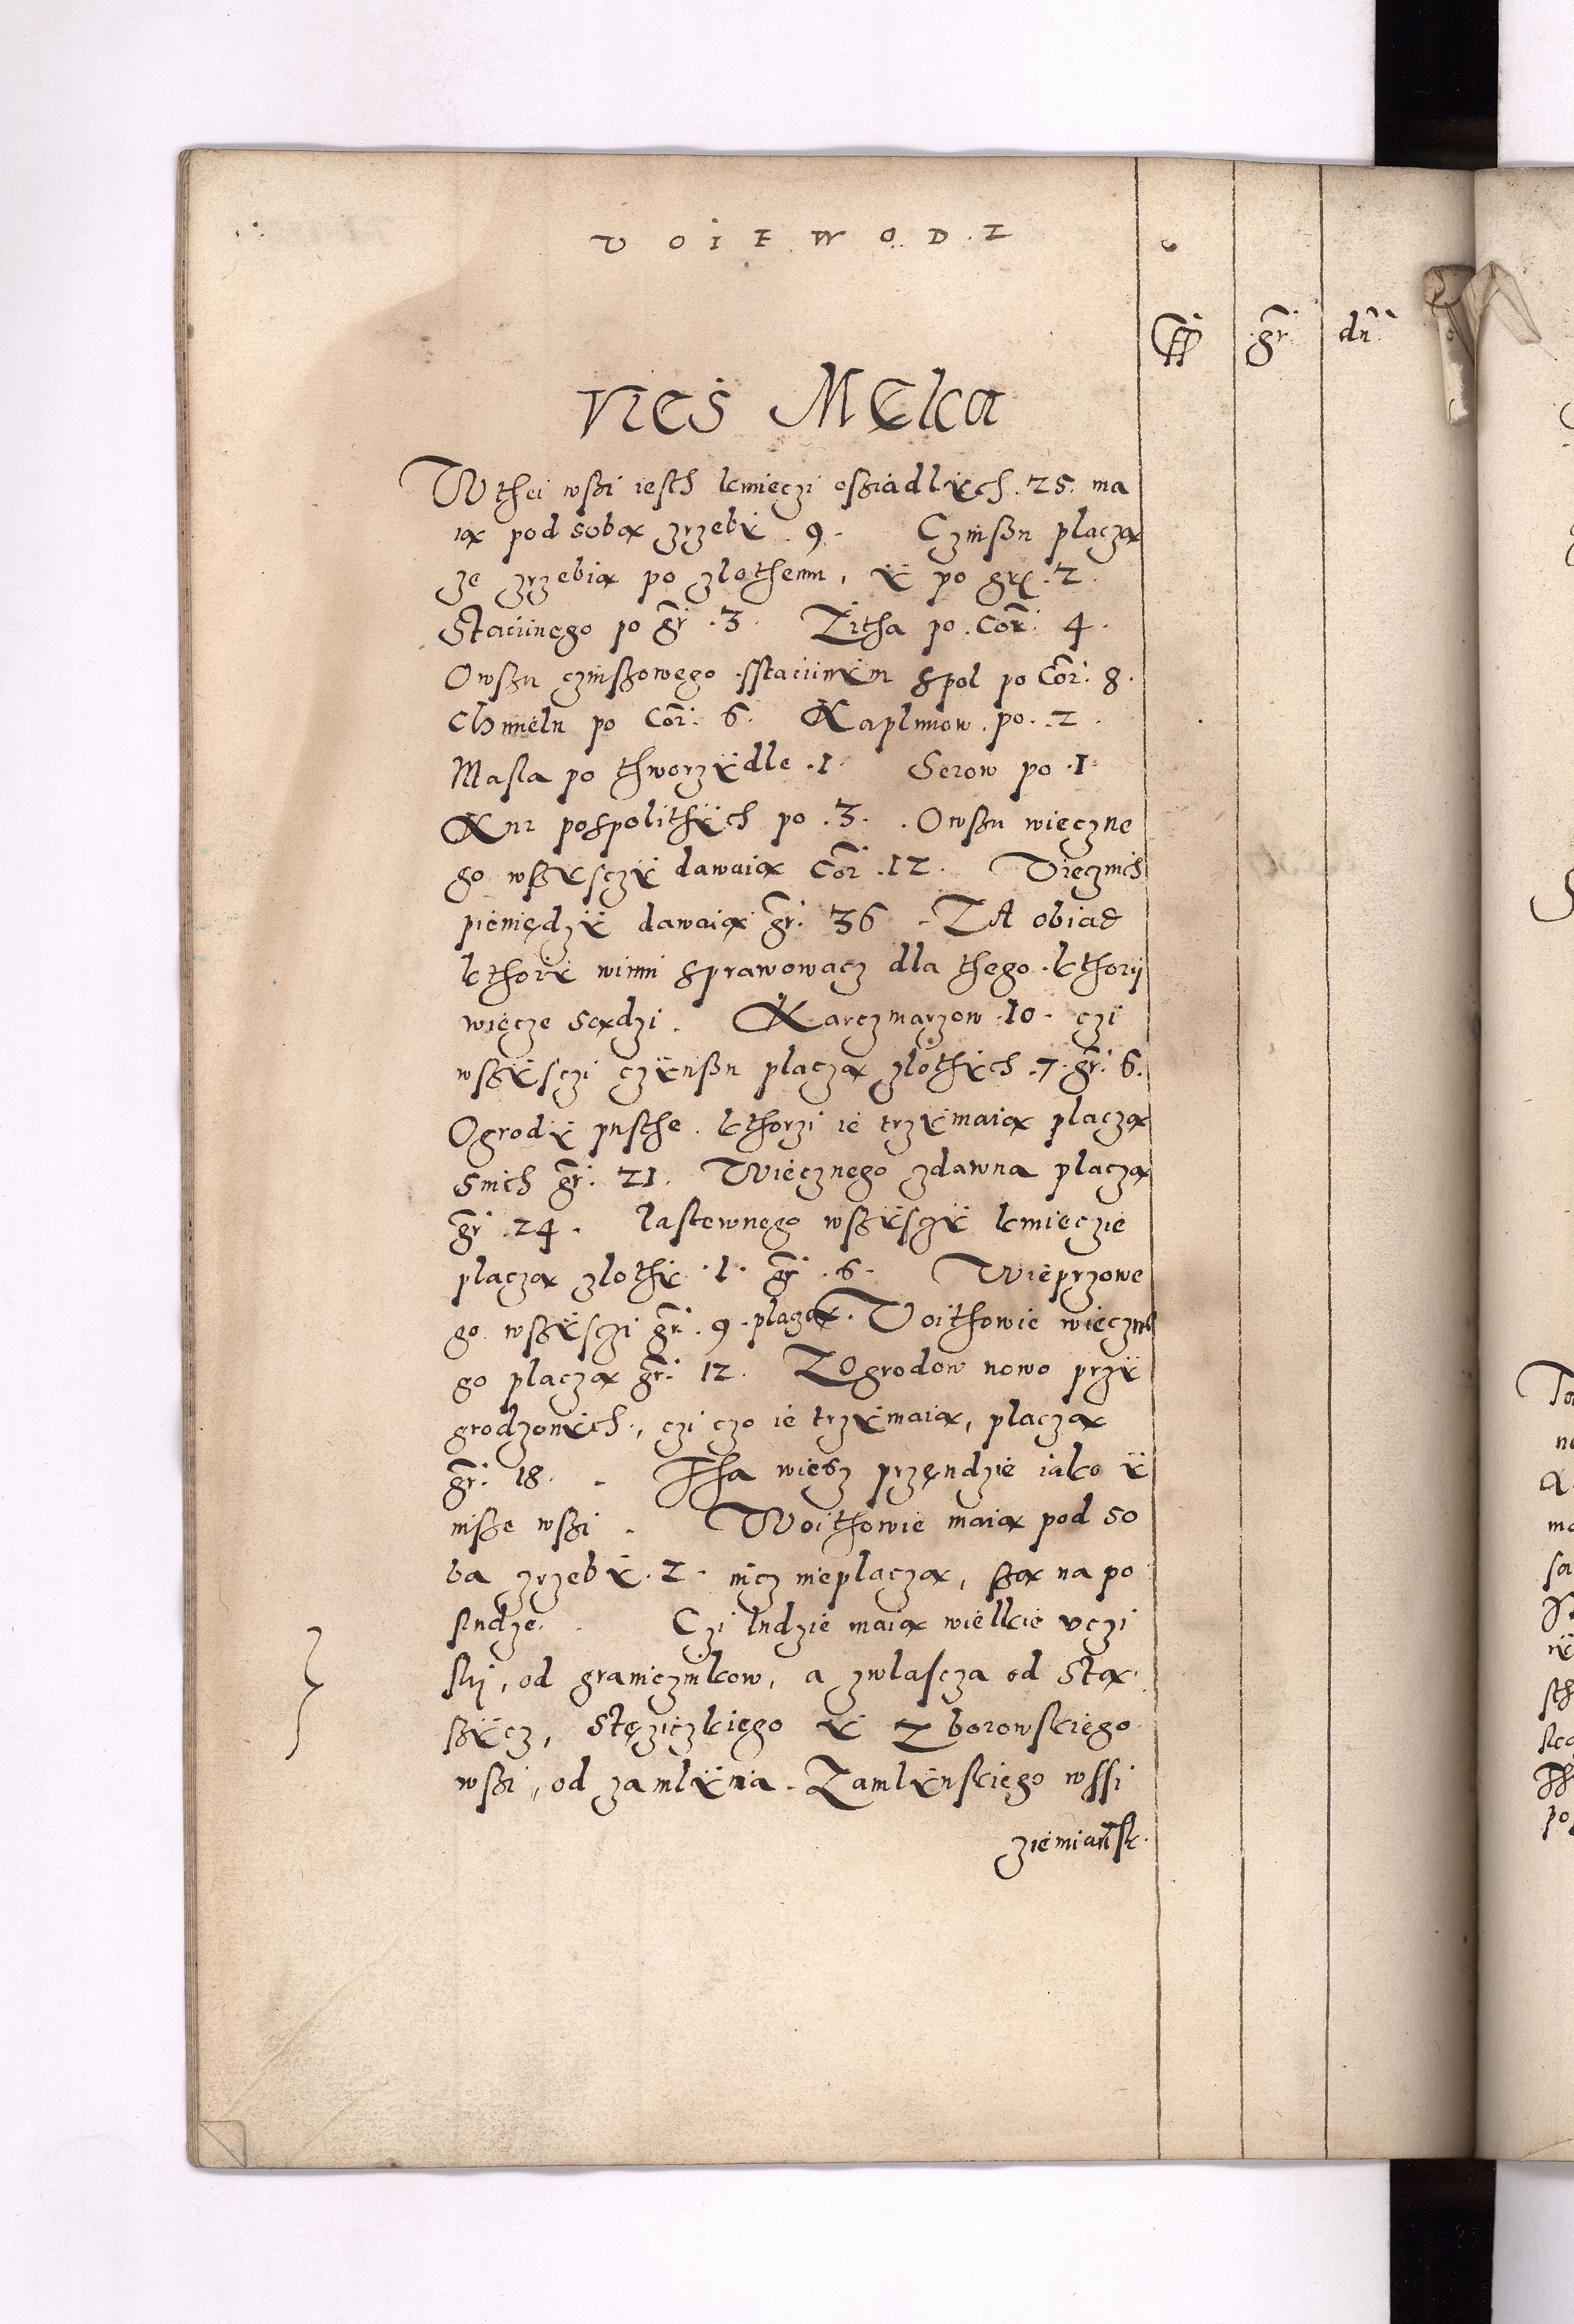 VOIEWODZ
ff gr. dn.
vies Męka
W thei wsßi iesth kmieczi oßiadlÿch . 25 . ma
ią pod sobą zrzebÿ . 9 . Czinßu placzą
ze zrzebia po zlothemu , ÿ po gr . 2 .
Staciinego po gr . 3 . Zitha po . Cor. 4 .
Owßu czinßowego sstaciinÿm spol po Cor. 8 .
Chmielu po Cor. 6 . Kaplunow . po . 2 .
Masla po thworzÿdle . 1 . Serow po . 1 .
Kur pospolithÿch po . 3 . . Owßu wieczne
go wßÿsczÿ dawaią Cor . 12 . Viecznich
pieniędzÿ dawaią gr. 36 - ZA obiad
kthorÿ winni sprawowacz dla thego . kthorij
wiecze sądzi . Karczmarzow . 10 . czi
wßÿsczi czÿnßu placzą zlothÿch . 7 . gr. 6 .
Ogrodÿ pusthe . kthorzi ie trzÿmaią placzą
snich gr. 21 . Wiecznego zdawna placzą
gr . 24 . lastewnego wßÿsczÿ kmieczie
placzą zlothÿ . 1 . gr . 6 . Wieprzowe
go wßÿsczi gr. 9 . placzą . Voithowie wieczne
go placzą gr. 12 . ZOgrodow nowo przÿ
grodzonÿch , czi czo ie trzÿmaią , placzą
gr. 18 . - Tha wiesz przęndzie iako ÿ
nisße wßi . Woithowie maią pod so
ba zrzebÿ . 2 . nicz nieplaczą , ßą na po
sludze . Czi ludzie maią wielkie vczi
ski , od granicznikow , a zwlascza od Stą
ßÿcz , Stęziczkiego ÿ Zborowskiego
wßi , od zamlÿnia . Zamlÿnskiego wssi
ziemiansk .